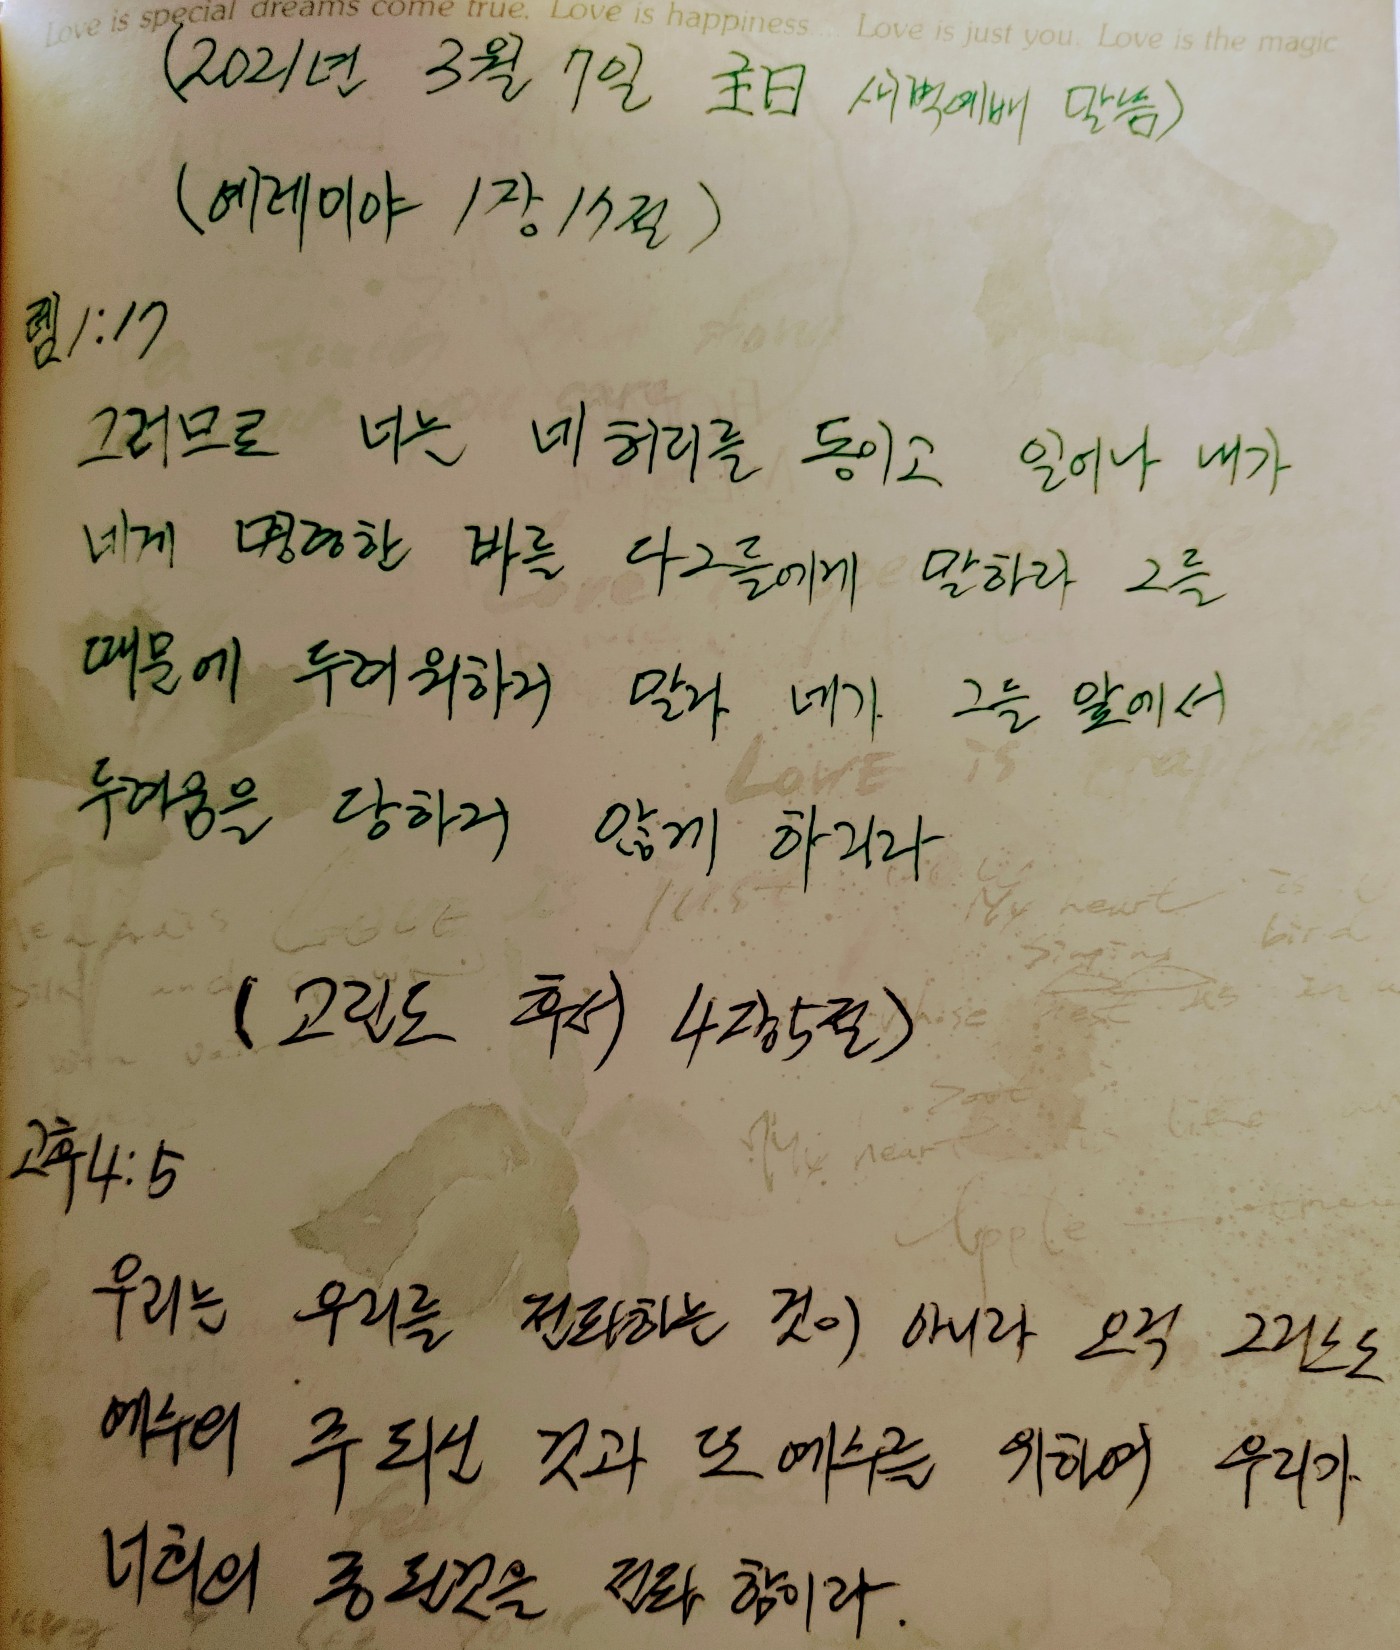 Love is special dreams come true. Love is happiness... Love is just you. Love is the magic
(2021년 3월 7일 主日 새벽예배 말씀)
(예레미야 1장 17절)
렘1:17
그러므로 너는 네 허리를 동이고 일어나 내가
네게 명령한 바를 다 그들에게 말하라 그들
때문에 두려워하지 말라 네가 그들 앞에서
두려움을 당하지 않게 하리라
(고린도 후서 4장5절)
고후4:5
우리는 우리를 전파하는 것이 아니라 오직 그리스도
예수의 주 되신 것과 또 예수를 위하여 우리가
너희의 종 된것을 전파 함이라.
LOVE is
My heart is
Singing bird
whose nest is in a
My heart is like an
Apple